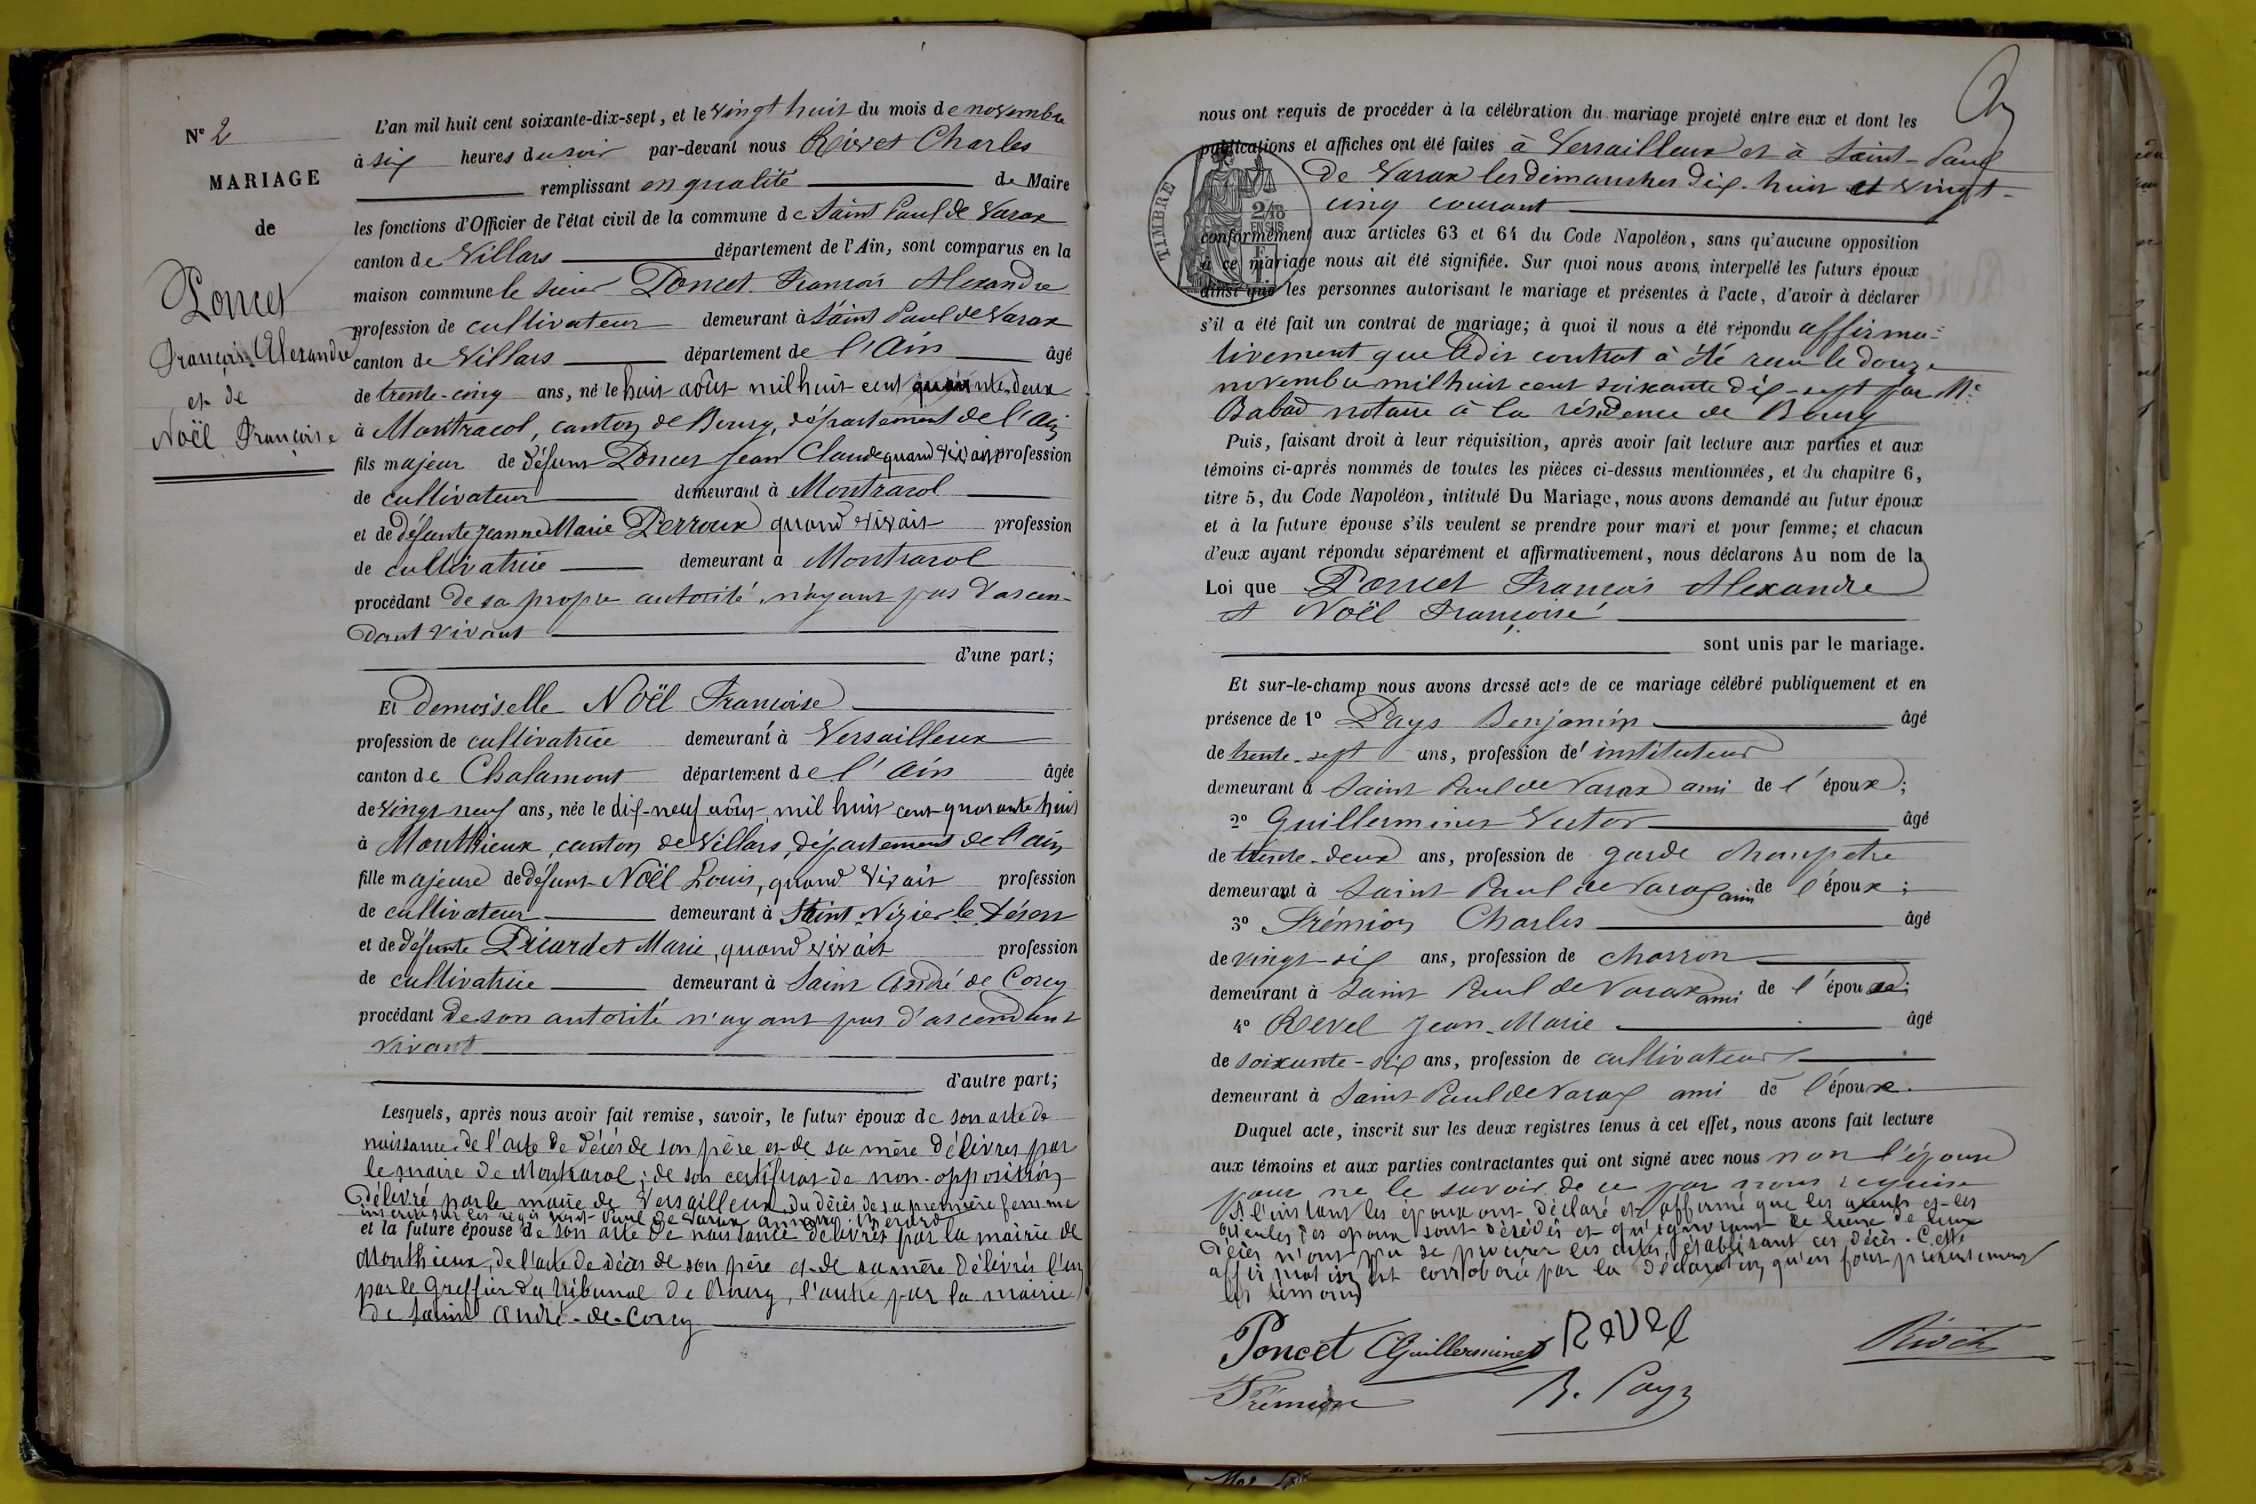 N° 2
MARIAGE
de
Poncet
François Alexandre
et de
Noël Françoise
L'an mil huit cent soixante-dix-sept, et le vingt huit du mois de novembre
à six heures du soir par-devant nous Rivet Charles
remplissant en qualité de Maire
les fonctions d'Officier de l'état civil de la commune de Saint Paul de Varax
canton de Villars département de l'Ain, sont comparus en la
maison commune le sieur Poncet François Alexandre
profession de cultivateur demeurant à Saint Paul de Varax
canton de Villars département de l'Ain âgé
de trente-cinq ans, né le huit août mil huit cent quarante deux
à Montracol, canton de Bourg, département de l'Ain
fils majeur de défunt Poncet Jean Claude quand vivait profession
de cultivateur demeurant à Montracol
et de défunte Jeanne Marie Perroux quand vivait profession
de cultivatrice demeurant à Montracol
procédant de sa propre autorité, n'ayant pas d'ascen-
dant vivant
d'une part;
Et Demoiselle Noël Françoise
profession de cultivatrice demeurant à Versailleux
canton de Chalamont département de l'Ain âgée
de vingt neuf ans, née le dix-neuf août mil huit cent quarante huit
à Monthieux, canton de Villars, département de l'Ain
fille majeure de défunt Noël Louis, quand vivait profession
de cultivateur demeurant à Saint Nizier le Désert
et de défunte Picardet Marie, quand vivait profession
de cultivatrice demeurant à Saint André de Corcy
procédant de son autorité n'ayant pas d'ascendant
vivant
d'autre part;
Lesquels, après nous avoir fait remise, savoir, le futur époux de son acte de
naissance de l'acte de décès de son père et de sa mère délivrés par
le maire de Montracol; de son certificat de non-opposition
délivré par le maire de Versailleux du décès de sa première femme
inscrit sur les regis Saint Paul de Varax
et la future épouse de son acte de naissance délivrés par la mairie de
Monthieux, de l'acte de décès de son père et de sa mère délivrés l'un
par le Greffier du tribunal de Bourg, l'autre par la mairie
de Saint André-de-Corcy
nous ont requis de procéder à la célébration du mariage projeté entre eux et dont les
publications et affiches ont été faites à Versailleux et à Saint-Paul
de Varax les dimanches dix-huit et vingt-
cinq courant
TIMBRE
2/10
EN SUS
conformément aux articles 63 et 64 du Code Napoléon, sans qu'aucune opposition
à ce mariage nous ait été signifiée. Sur quoi nous avons interpellé les futurs époux
ainsi que les personnes autorisant le mariage et présentes à l'acte, d'avoir à déclarer
s'il a été fait un contrat de mariage; à quoi il nous a été répondu affirma-
tivement que ledit contrat à été reçu le douze
novembre mil huit cent soixante dix-sept par Me
Babad notaire à la résidence de Bourg
Puis, faisant droit à leur réquisition, après avoir fait lecture aux parties et aux
témoins ci-après nommés de toutes les pièces ci-dessus mentionnées, et du chapitre 6,
titre 5, du Code Napoléon, intitulé Du Mariage, nous avons demandé au futur époux
et à la future épouse s'ils veulent se prendre pour mari et pour femme; et chacun
d'eux ayant répondu séparément et affirmativement, nous déclarons Au nom de la
Loi que Poncet François Alexandre
et Noël Françoise
sont unis par le mariage.
Et sur-le-champ nous avons dressé acte de ce mariage célébré publiquement et en
présence de 1° Pays Benjamin âgé
de trente-sept ans, profession de instituteur
demeurant à Saint Paul de Varax ami de l'époux;
2° Guillerminet Victor âgé
de trente-deux ans, profession de garde champetre
demeurant à Saint Paul de Varax ami de l'époux;
3° Frémion Charles âgé
de vingt-six ans, profession de charron
demeurant à Saint Paul de Varax ami de l'époux;
4° Revel Jean-Marie âgé
de soixante-six ans, profession de cultivateur
demeurant à Saint Paul de Varax ami de l'époux.
Duquel acte, inscrit sur les deux registres tenus à cet effet, nous avons fait lecture
aux témoins et aux parties contractantes qui ont signé avec nous non l'épouse
pour ne le savoir de ce par nous requise
A l'instant les époux ont déclaré et affirmé que les aïeuls et les
aïeules des époux sont décédés et qu'ignorant le lieu de leur
décès n'ont pu se procurer les actes établissant ces décès. Cette
affirmation est corroborée par la déclaration qu'en font présentement
les témoins
Poncet Guillerminet Revel Rivet
Frémion B. Pays